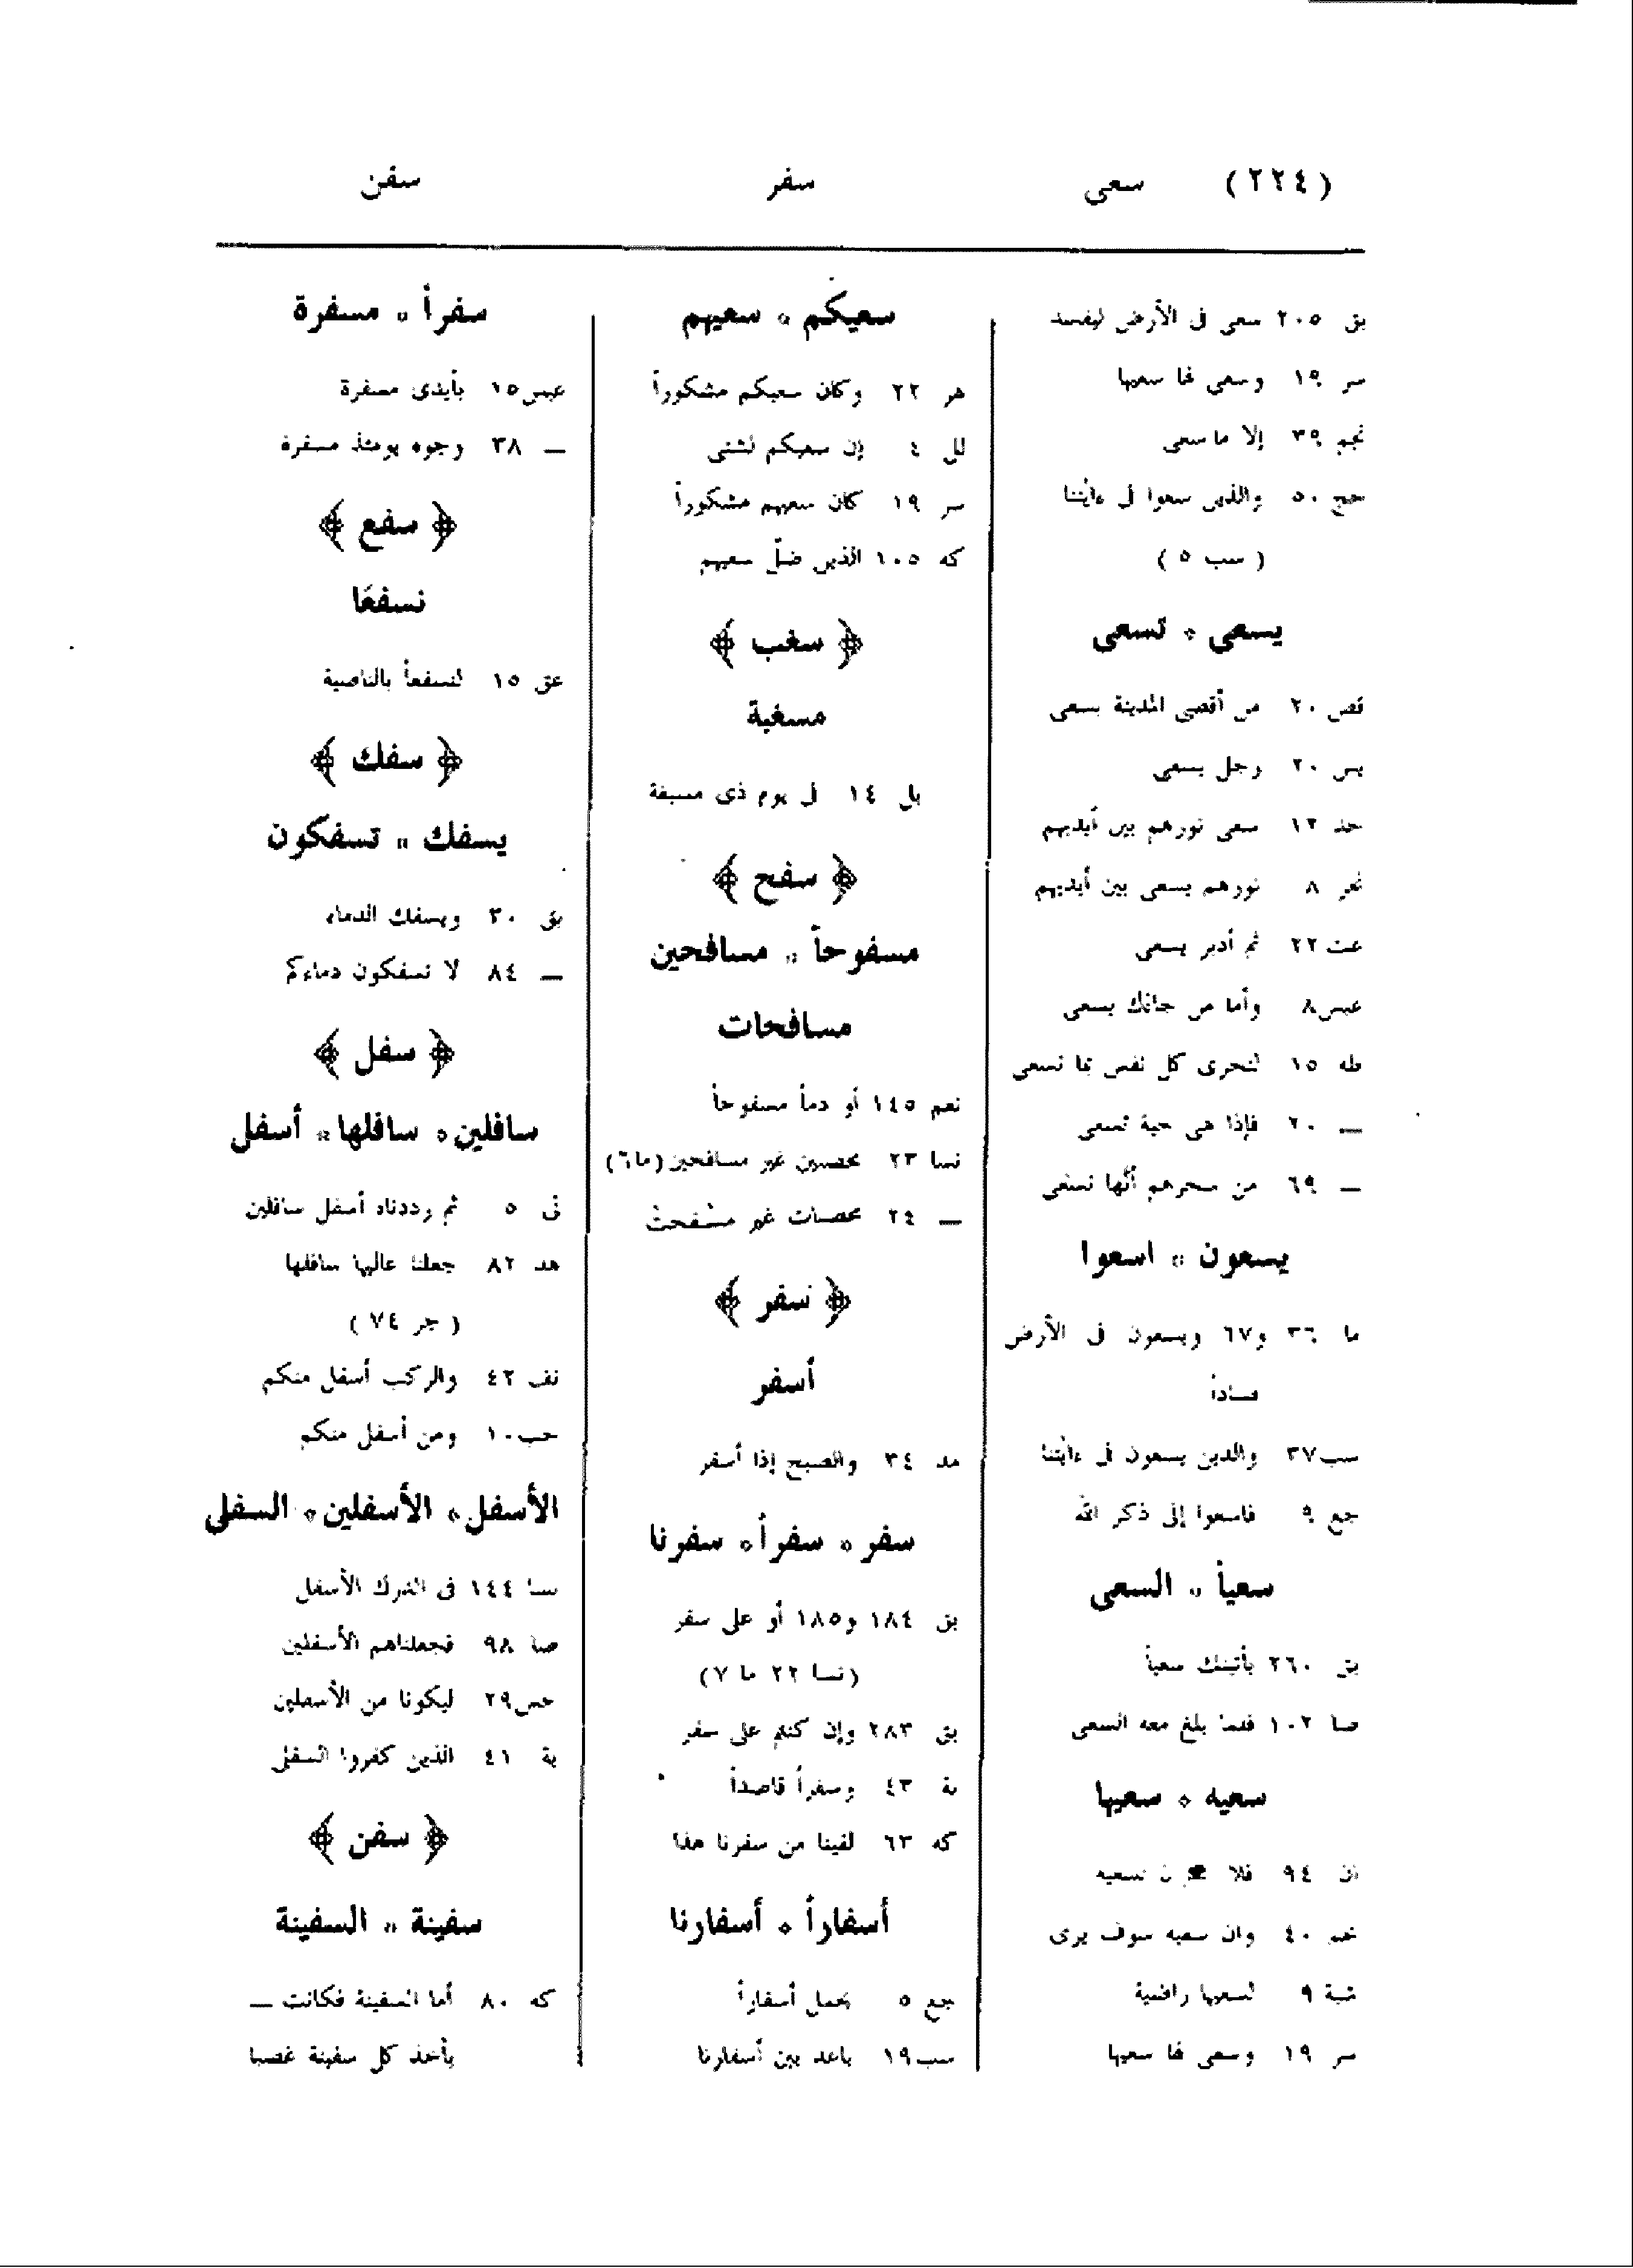 (٢٢٤) سعى سفر سفن
بق ٢٠٥ سعى فى الأرض ليفسد
سر ١٩ وسعى لها سعيها
نجم ٣٩ إلا ما سعى
حج ٥٠ والذين سعوا فى ءايٰتنا
( سب ٥ )
يسعى * تسعى
قص ٢٠ من أقصى المدينة يسعى
يس ٢٠ رجل يسعى
حد ١٢ سعى نورهم بين أيديهم
تحر ٨ نورهم يسعى بين أيديهم
عت ٢٢ ثم أدبر يسعى
عبس ٨ وأما من جائك يسعى
طه ١٥ لتجزى كل نفس بما تسعى
— ٢٠ فإذا هى حية تسعى
— ٦٩ من سحرهم أنّها تسعى
يسعون * اسعوا
ما ٣٦ و٦٧ ويسعون فى الأرض
فساداً
سب ٣٧ والذين يسعون فى ءايٰتنا
جع ٩ فاسعوا إلى ذكر الله
سعياً * السعى
بق ٢٦٠ يأتينك سعياً
صا ١٠٢ فلما بلغ معه السعى
سعيه * سعيها
ان ٩٤ فلا لسعيه
نجم ٤٠ وان سعيه سوف يرى
شية ٩ لسعيها راضية
سر ١٩ وسعى لها سعيها
سعيكم * سعيهم
هر ٢٢ وكان سعيكم مشكوراً
لل ٤ إن سعيكم لشتى
سر ١٩ كان سعيهم مشكوراً
كه ١٠٥ الذين ضلّ سعيهم
﴿ سغب ﴾
مسغبة
بل ١٤ فى يوم ذى مسبغة
﴿ سفح ﴾
مسفوحاً * مسافحين
مسافحات
نعم ١٤٥ أو دماً مسفوحاً
نسا ٢٣ محصنين غير مسافحين (ما ٦)
— ٢٤ محصنات غير مسٰفحٰت
﴿ سفر ﴾
أسفر
مد ٣٤ والصبح إذا أسفر
سفر * سفراً * سفرنا
بق ١٨٤ و١٨٥ أو على سفر
(نسا ٢٢ ما ٧)
بق ٢٨٣ وإن كنتم على سفر
بة ٤٣ وسفراً قاصداً
كه ٦٣ لقينا من سفرنا هذا
أسفاراً * أسفارنا
جع ٥ يحمل أسفاراً
سب ١٩ باعد بين أسفارنا
سفراً * مسفرة
عبس ١٥ بأيدى مسفرة
— ٣٨ وجوه يومئذ مسفرة
﴿ سفع ﴾
نسفعًا
عق ١٥ لنسفعاً بالناصية
﴿ سفك ﴾
يسفك * تسفكون
بق ٣٠ ويسفك الدماء
— ٨٤ لا تسفكون دماءكم
﴿ سفل ﴾
سافلين * سافلها * أسفل
تى ٥ ثم رددناه أسفل سافلين
هد ٨٢ جعلنا عاليها سافلها
( جر ٧٤ )
نف ٤٢ والركب أسفل منكم
حب ١٠ ومن أسفل منكم
الأسفل * الأسفلين * السفلى
نسا ١٤٤ فى الدرك الأسفل
صا ٩٨ فجعلناهم الأسفلين
حس ٢٩ ليكونا من الأسفلين
بة ٤١ الذين كفروا السفلى
﴿ سفن ﴾
سفينة * السفينة
كه ٨٠ أما السفينة فكانت —
يأخذ كل سفينة غصبا